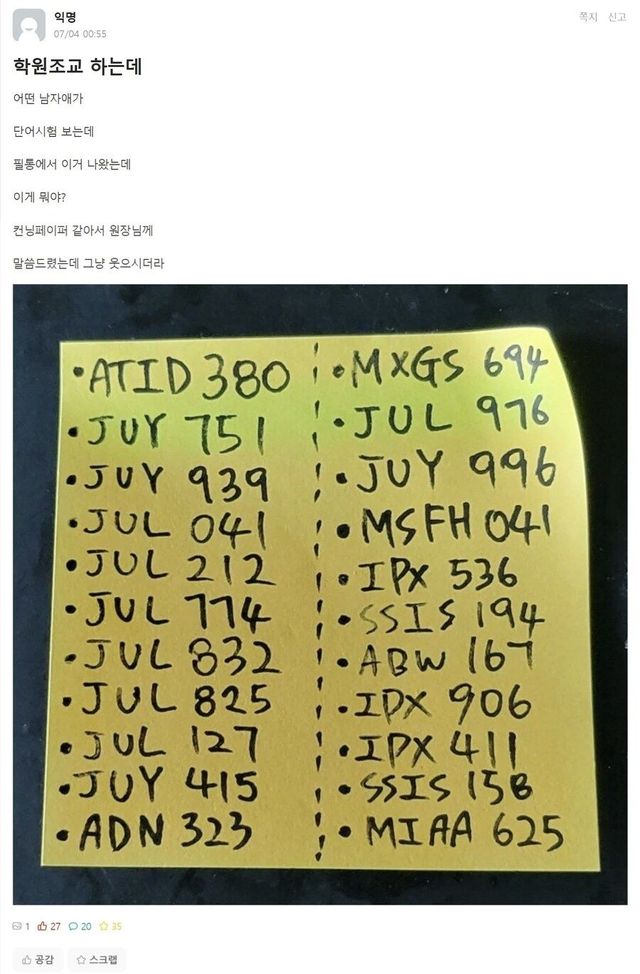 익명
쪽지 신고
07/04 00:55
학원조교 하는데
어떤 남자애가
단어시험 보는데
필통에서 이거 나왔는데
이게 뭐야?
컨닝페이퍼 같아서 원장님께
말씀드렸는데 그냥 웃으시더라
• ATID 380
• JUY 751
• JUY 939
• JUL 041
• JUL 212
• JUL 774
• JUL 832
• JUL 825
• JUL 127
• JUY 415
• ADN 323
• MXGS 694
• JUL 976
• JUY 996
• MSFH 041
• IPX 536
• SSIS 194
• ABW 167
• IPX 906
• IPX 411
• SSIS 158
• MIAA 625
1 27 20 35
공감 스크랩